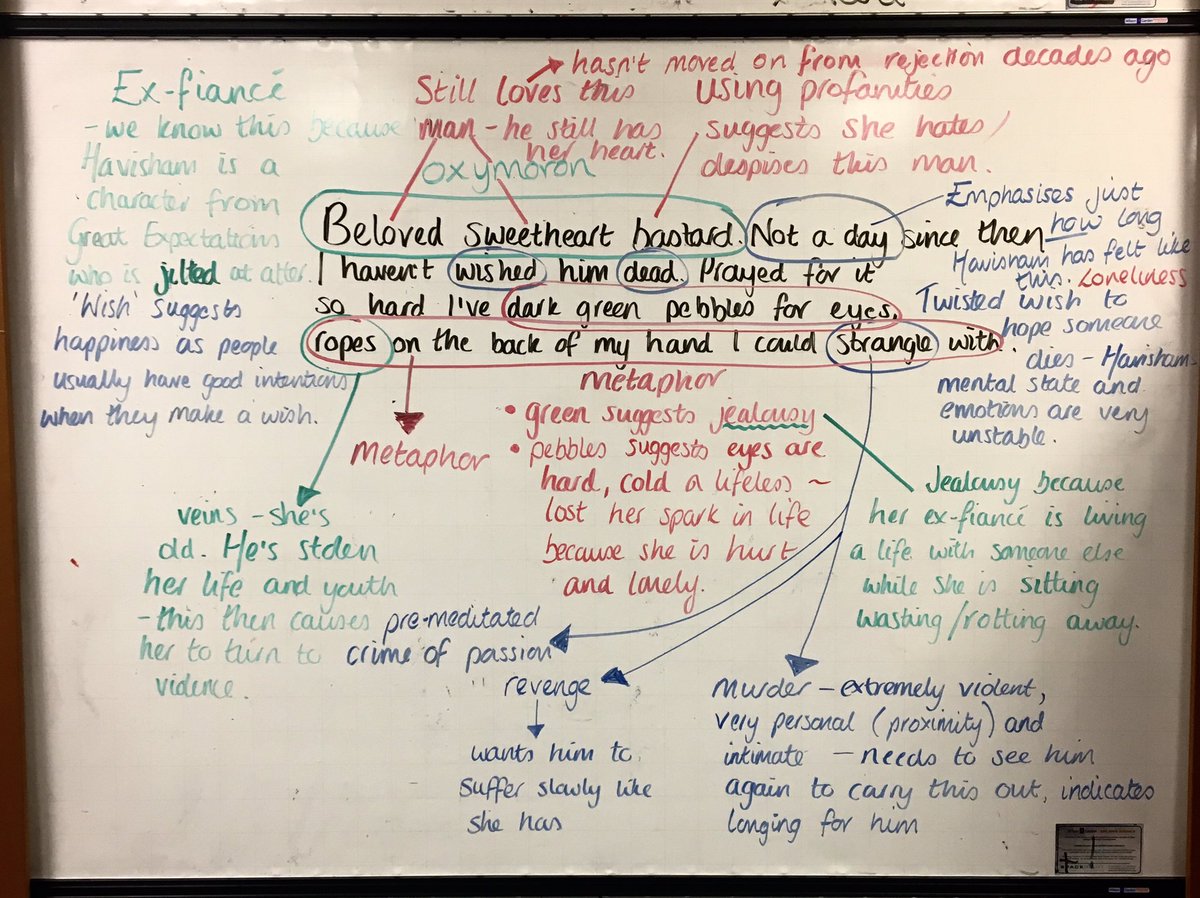 Ex-fiancé
- we know this because
Havisham is a
character from
Great Expectations
who is jilted at alter.
'Wish' suggests
happiness as people
usually have good intentions
when they make a wish.
Still loves this
man - he still has
her heart.
hasn't moved on from rejection decades ago
using profanities
suggests she hates/
despises this man.
oxymoron
Beloved sweetheart bastard. Not a day since then
I haven't wished him dead. Prayed for it
so hard I've dark green pebbles for eyes,
ropes on the back of my hand I could strangle with.
Emphasises just
how long
Havisham has felt like
this. Loneliness
Twisted wish to
hope someone
dies - Havisham-
mental state and
emotions are very
unstable.
metaphor
metaphor
• green suggests jealousy
• pebbles suggests eyes are
hard, cold a lifeless ~
lost her spark in life
because she is hurt
and lonely.
Jealousy because
her ex-fiancé is living
a life with someone else
while she is sitting
wasting/rotting away.
veins - she's
old. He's stolen
her life and youth
- this then causes
her to turn to
violence.
pre-meditated
crime of passion
revenge
wants him to
suffer slowly like
she has
Murder - extremely violent,
very personal (proximity) and
intimate - needs to see him
again to carry this out, indicates
longing for him